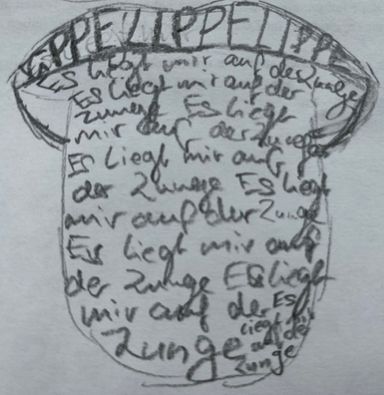 LIPPELIPPELIPPE
Es liegt mir auf der Zunge
Es liegt mir auf der
Zunge Es liegt
mir auf der Zunge
Es liegt mir auf
der Zunge Es liegt
mir auf der Zunge
Es liegt mir auf
der Zunge Es liegt
mir auf der Es
Zunge liegt mir
auf der
Zunge